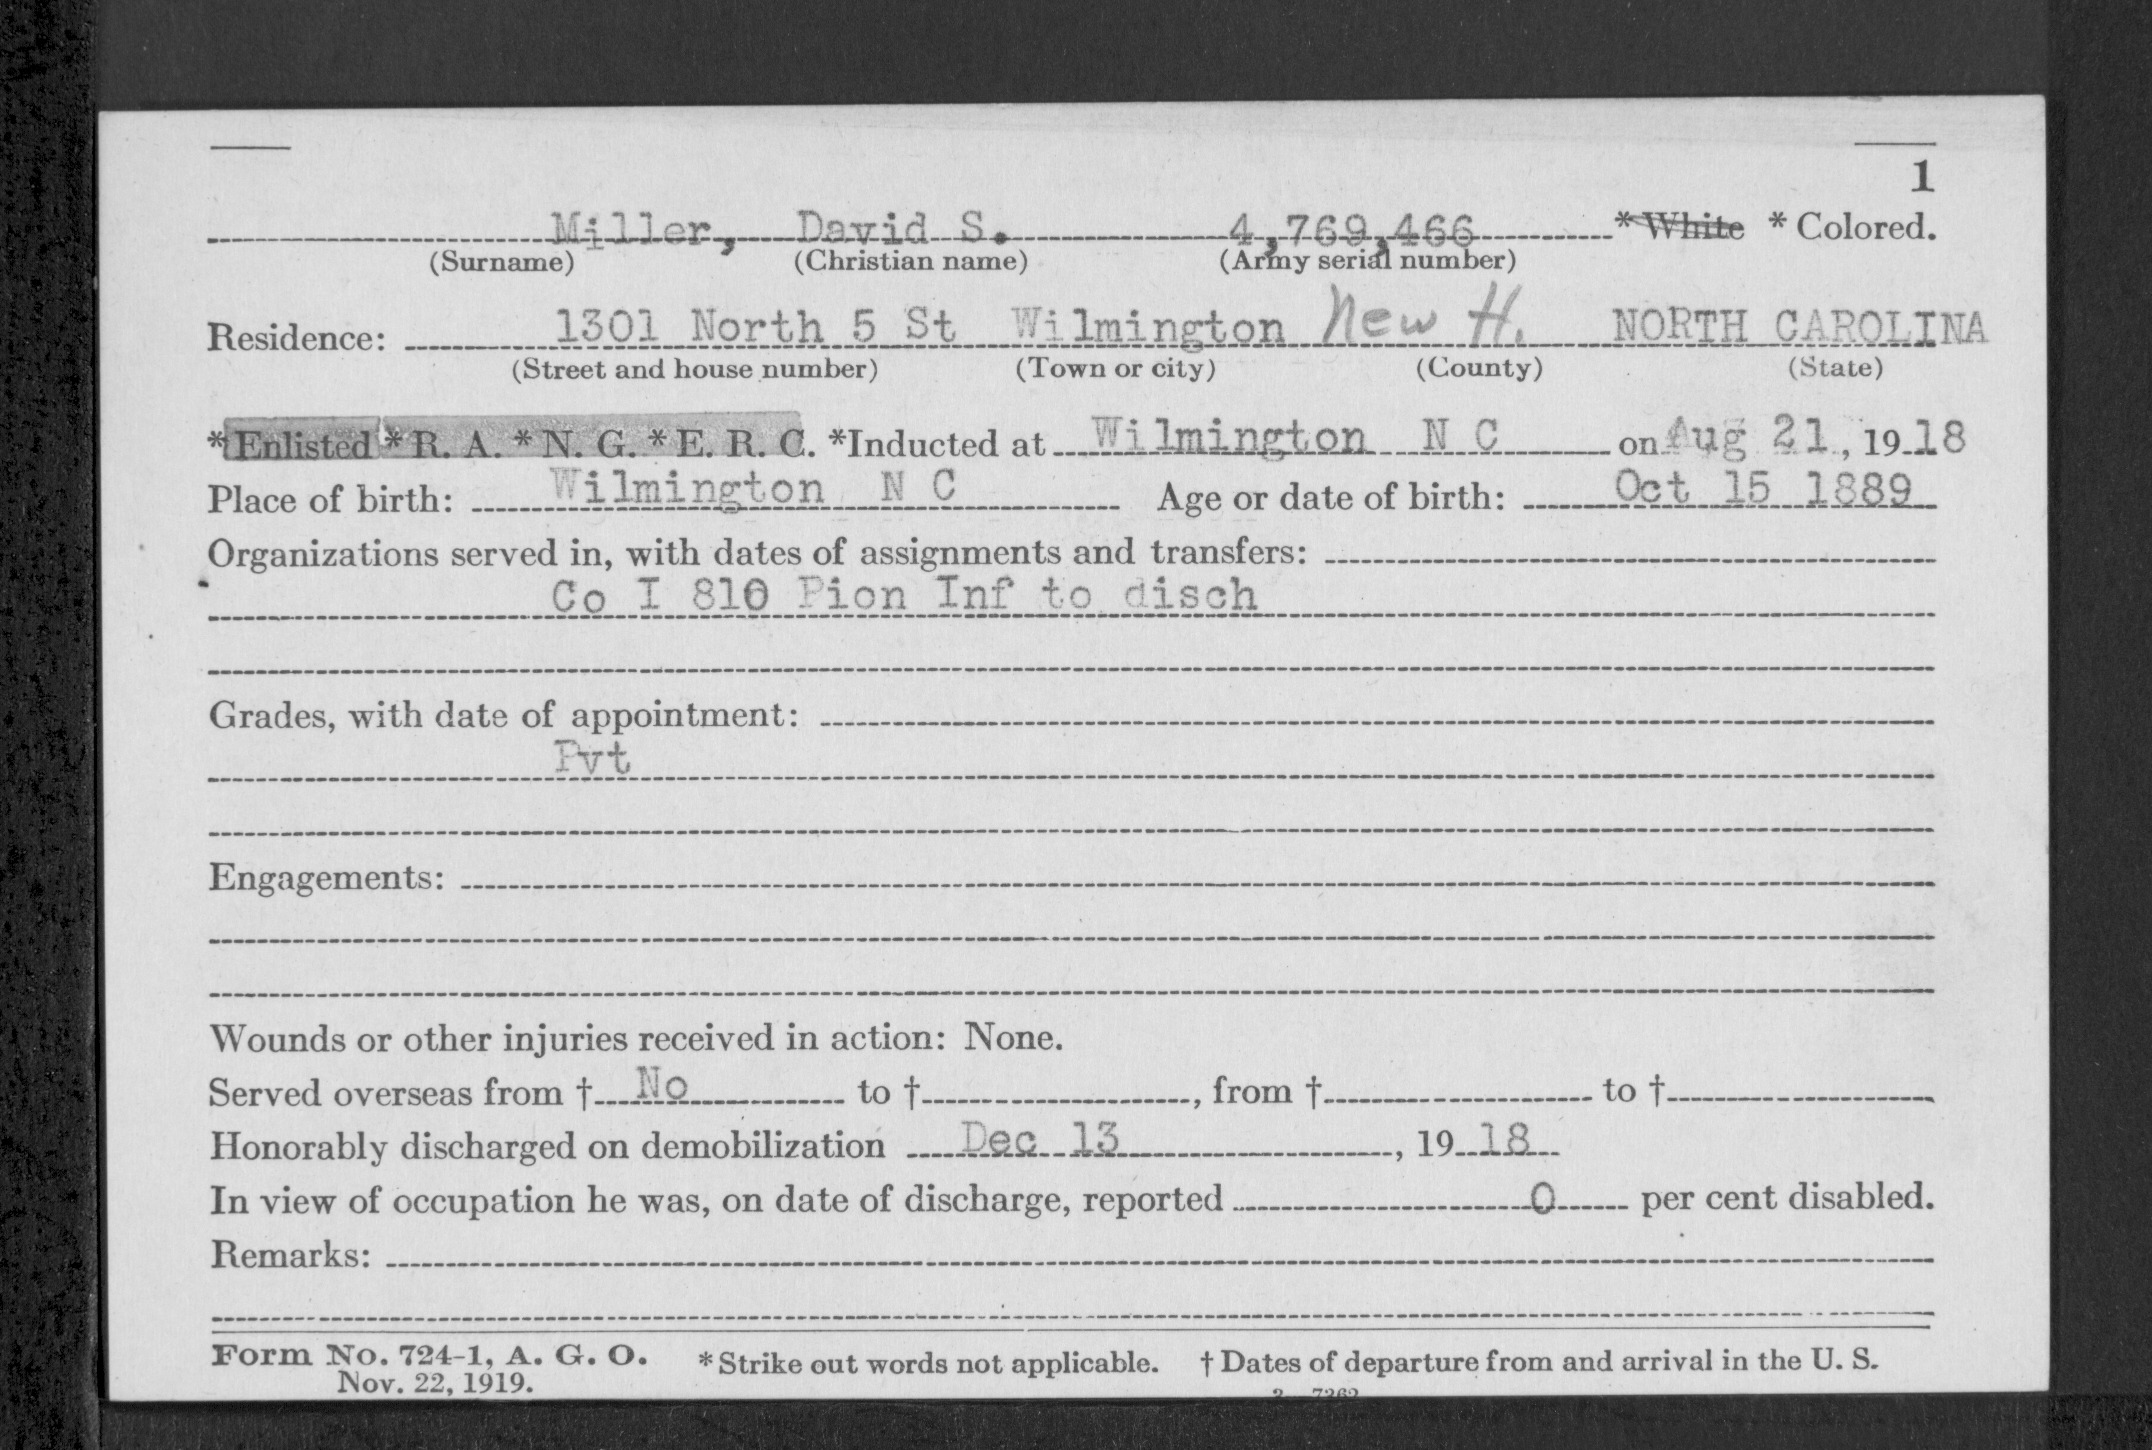 1
Miller, David S. 4,769,466 * White * Colored.
(Surname) (Christian name) (Army serial number)
Residence: 1301 North 5 St Wilmington New H. NORTH CAROLINA
(Street and house number) (Town or city) (County) (State)
* Enlisted * R. A. * N. G. * E. R. C. *Inducted at Wilmington N C on Aug 21, 1918
Place of birth: Wilmington N C Age or date of birth: Oct 15 1889
Organizations served in, with dates of assignments and transfers:
Co I 810 Pion Inf to disch
Grades, with date of appointment:
Pvt
Engagements:
Wounds or other injuries received in action: None.
Served overseas from † No to †, from † to †
Honorably discharged on demobilization Dec 13, 1918
In view of occupation he was, on date of discharge, reported 0 per cent disabled.
Remarks:
Form No. 724-1, A. G. O. * Strike out words not applicable. † Dates of departure from and arrival in the U. S.
Nov. 22, 1919.